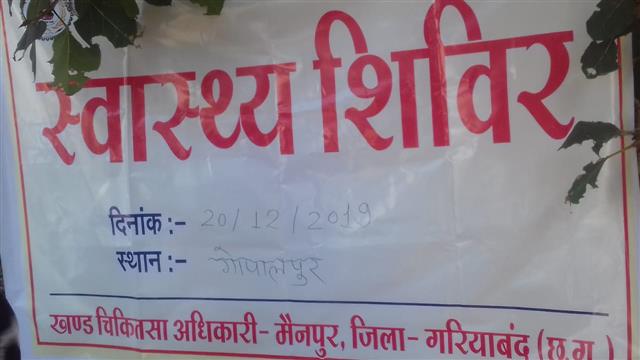 स्वास्थ्य शिविर
दिनांक :- 20/12/2019
स्थान :- गोपालपुर
खण्ड चिकितसा अधिकारी- मैनपुर, जिला- गरियाबंद (छ.ग.)